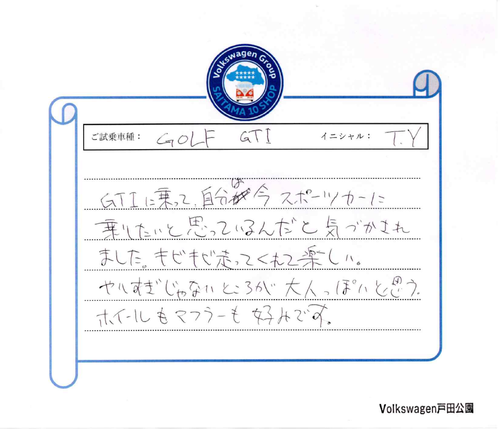 Volkswagen Group
SAITAMA 10 SHOP
ご試乗車種： GOLF GTI イニシャル： T.Y
GTIに乗って、自分は今スポーツカーに
乗りたいと思っているんだと気づかされ
ました。キビキビ走ってくれて楽しい。
ヤリすぎじゃないところが大人っぽいと思う。
ホイールもマフラーも好みです。
Volkswagen戸田公園